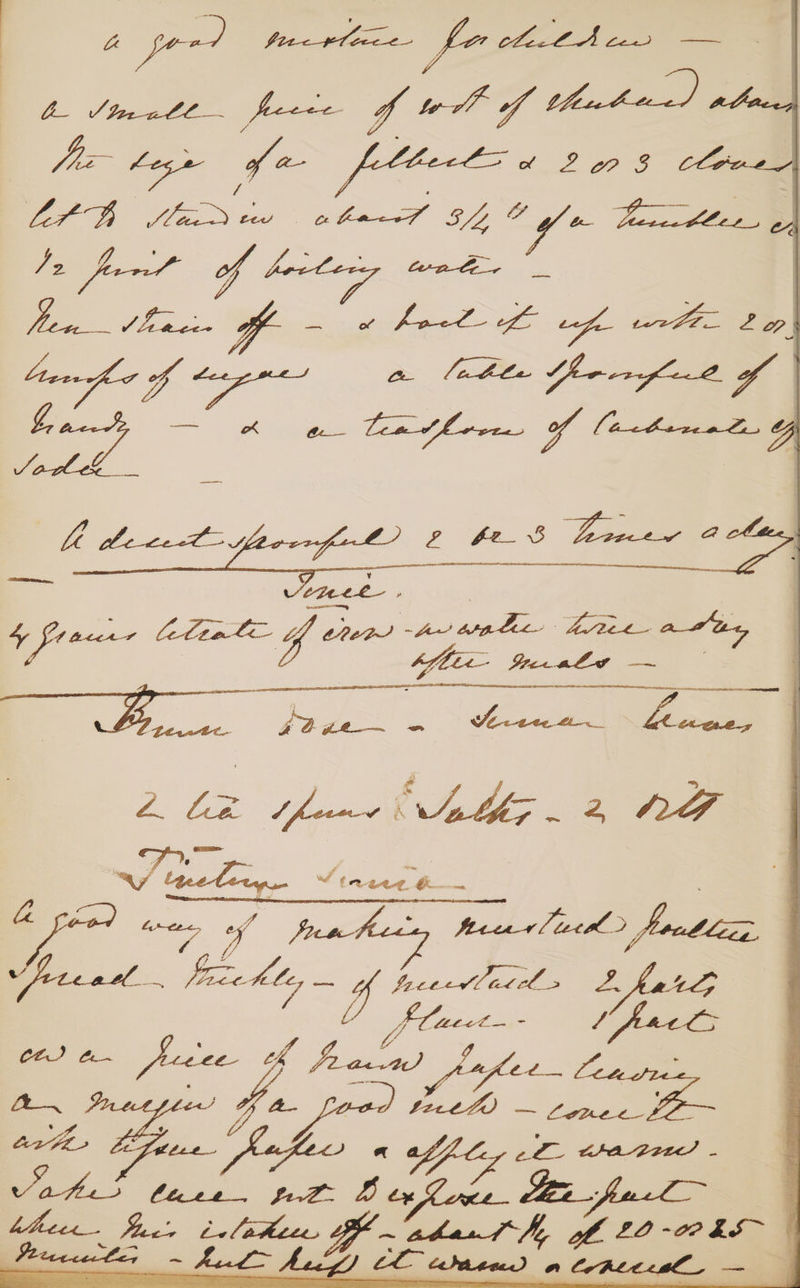 a good mixture for children —
a small piece of root of rhubard about
the size of a filbert & 2 or 3 cloves
let to stand in about 3/4 of a tumbler or
1/2 pint of boiling water —
then strain off - & boil it up with 2 or 3
lumps of sugar a table spoonful of
brandy — & a teaspoon of Carbonate of
Soda —
A desert spoonful 2 or 3 times a day
Tonic.
4 Grains Citrate of iron - in water twice a day
after meals —
Brown Dose - Senna leaves
2 tea spoons Salts - 2 ditt
Tincture Senna
A good way of making mustard poultice
Spread thickly - of mustard 2 parts
flour - 1 part
on a piece of brown paper leaving
a margin of a good inch - cover it
with tissue paper & apply it warm -
Take care not to expose the part
when this is taken off - about 1/4 of 20 - or 25
Minutes - but keep it warm & covered —